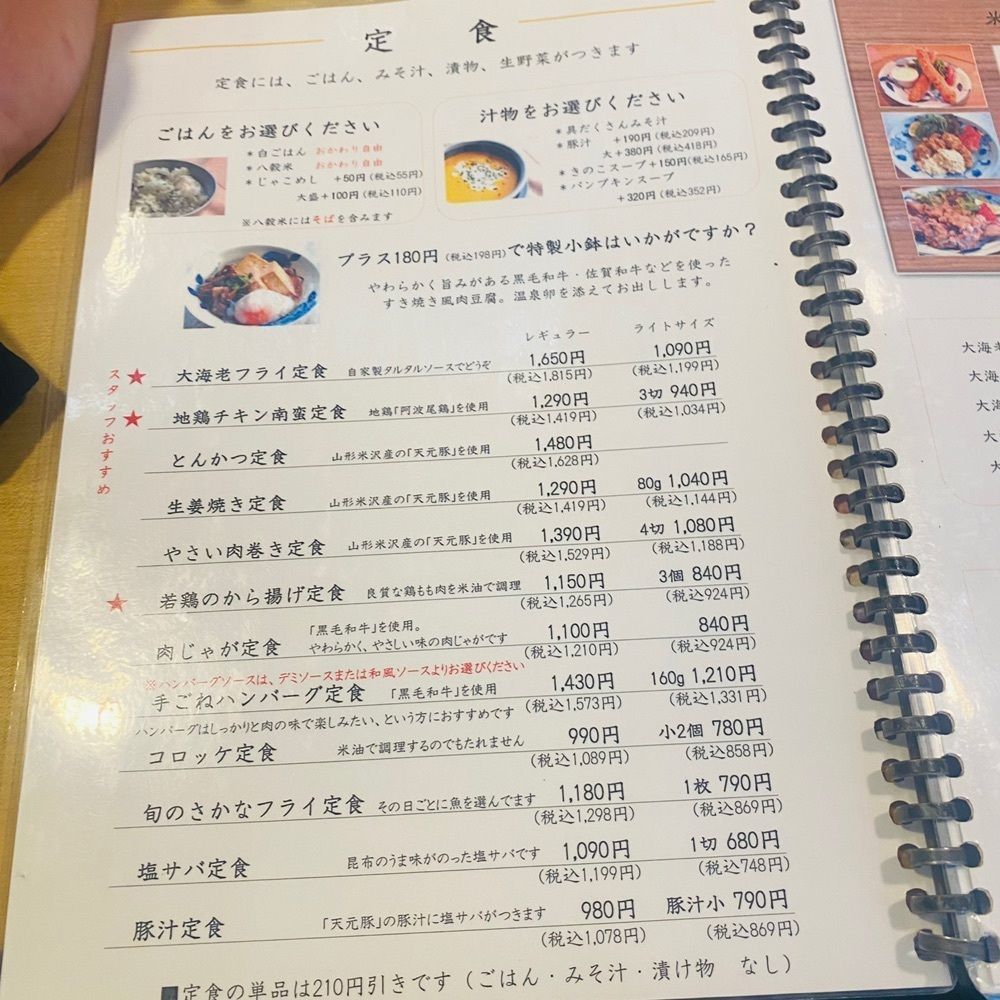 定 食
定食には、ごはん、みそ汁、漬物、生野菜がつきます
ごはんをお選びください
＊白ごはん おかわり自由
＊八穀米 おかわり自由
＊じゃこめし +50円(税込55円)
大盛+100円(税込110円)
※八穀米にはそばを含みます
汁物をお選びください
＊具だくさんみそ汁
＊豚汁 +190円(税込209円)
大+380円(税込418円)
＊きのこスープ+150円(税込165円)
＊パンプキンスープ
+320円(税込352円)
プラス180円(税込198円)で特製小鉢はいかがですか？
やわらかく旨みがある黒毛和牛・佐賀和牛などを使った
すき焼き風肉豆腐。温泉卵を添えてお出しします。
レギュラー ライトサイズ
スタッフおすすめ
★ 大海老フライ定食 自家製タルタルソースでどうぞ 1,650円 1,090円
(税込1,815円) (税込1,199円)
★ 地鶏チキン南蛮定食 地鶏「阿波尾鶏」を使用 1,290円 3切 940円
(税込1,419円) (税込1,034円)
とんかつ定食 山形米沢産の「天元豚」を使用 1,480円
(税込1,628円)
生姜焼き定食 山形米沢産の「天元豚」を使用 1,290円 80g 1,040円
(税込1,419円) (税込1,144円)
やさい肉巻き定食 山形米沢産の「天元豚」を使用 1,390円 4切 1,080円
(税込1,529円) (税込1,188円)
★ 若鶏のから揚げ定食 良質な鶏もも肉を米油で調理 1,150円 3個 840円
(税込1,265円) (税込924円)
「黒毛和牛」を使用。
肉じゃが定食 やわらかく、やさしい味の肉じゃがです 1,100円 840円
(税込1,210円) (税込924円)
※ハンバーグソースは、デミソースまたは和風ソースよりお選びください
手ごねハンバーグ定食 「黒毛和牛」を使用 1,430円 160g 1,210円
(税込1,573円) (税込1,331円)
ハンバーグはしっかりと肉の味で楽しみたい、という方におすすめです
コロッケ定食 米油で調理するのでもたれません 990円 小2個 780円
(税込1,089円) (税込858円)
旬のさかなフライ定食 その日ごとに魚を選んでます 1,180円 1枚 790円
(税込1,298円) (税込869円)
塩サバ定食 昆布のうま味がのった塩サバです 1,090円 1切 680円
(税込1,199円) (税込748円)
豚汁定食 「天元豚」の豚汁に塩サバがつきます 980円 豚汁小 790円
(税込1,078円) (税込869円)
■定食の単品は210円引きです（ごはん・みそ汁・漬け物 なし）
米
大海老
大海
大海
大
大